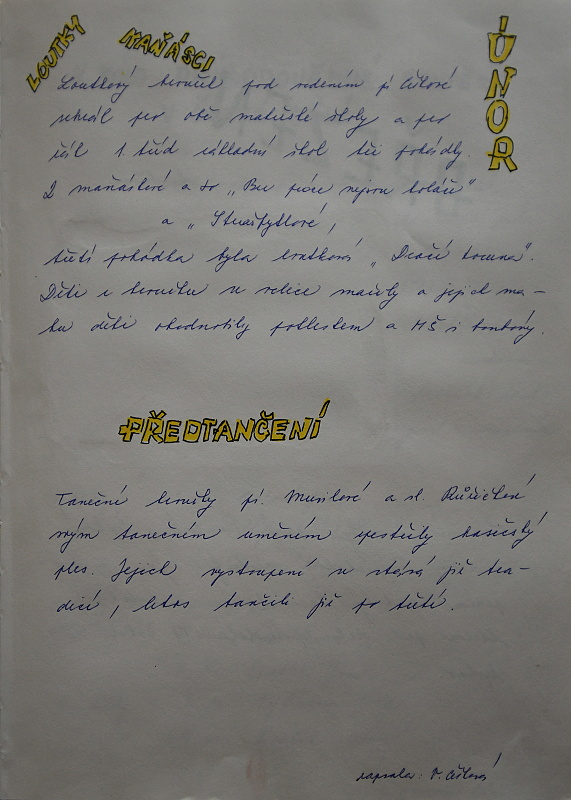 LOUTKY
MAŇÁSCI
ÚNOR
Loutkový kroužek pod vedením pí
sehrál pro obě mateřské školy a pro
žáky 1. tříd základní škol tři pohádky.
2 maňáskové a to „Bez práce nejsou koláče"
a „
třetí pohádka byla krátká „Dračí koruna".
Děti z kroužku se velice snažily a jejich sna-
hu děti ohodnotily potleskem a MŠ i bonbóny.
PŘEDTANČENÍ
Taneční kroužky pí. Musilové a sl. Růžičkové
svým tanečním uměním zpestřily hasičský
ples. Jejich vystoupení se stává již tra-
dicí, letos tančili již po třetí.
zapsala: